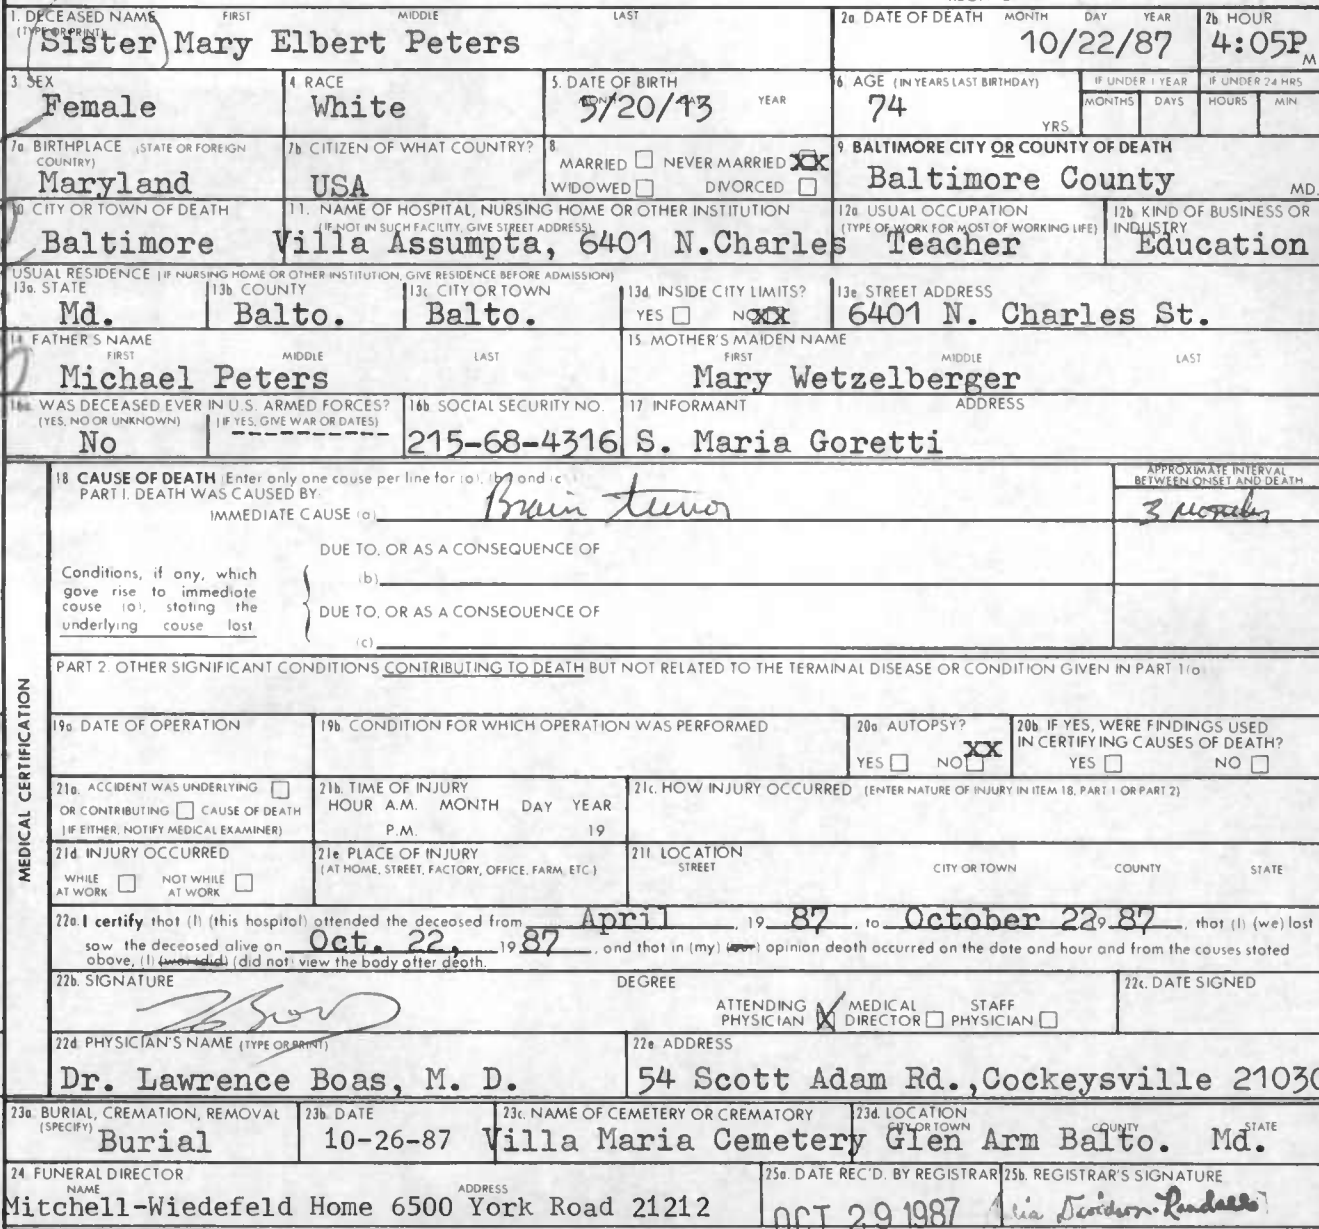 1. DECEASED NAME FIRST MIDDLE LAST
(TYPE OR PRINT)
Sister Mary Elbert Peters
2a DATE OF DEATH MONTH DAY YEAR
10/22/87
2b HOUR
4:05P M
3 SEX
Female
4 RACE
White
5. DATE OF BIRTH
MONTH DAY YEAR
5/20/13
6 AGE (IN YEARS LAST BIRTHDAY)
74
YRS
IF UNDER 1 YEAR
MONTHS DAYS
IF UNDER 24 HRS
HOURS MIN
7a BIRTHPLACE (STATE OR FOREIGN
COUNTRY)
Maryland
7b CITIZEN OF WHAT COUNTRY?
USA
8
MARRIED NEVER MARRIED XX
WIDOWED DIVORCED
9 BALTIMORE CITY OR COUNTY OF DEATH
Baltimore County MD.
10 CITY OR TOWN OF DEATH
Baltimore
11. NAME OF HOSPITAL, NURSING HOME OR OTHER INSTITUTION
(IF NOT IN SUCH FACILITY, GIVE STREET ADDRESS)
Villa Assumpta, 6401 N.Charles
12a USUAL OCCUPATION
(TYPE OF WORK FOR MOST OF WORKING LIFE)
Teacher
12b KIND OF BUSINESS OR
INDUSTRY
Education
USUAL RESIDENCE (IF NURSING HOME OR OTHER INSTITUTION, GIVE RESIDENCE BEFORE ADMISSION)
13a. STATE
Md.
13b COUNTY
Balto.
13c CITY OR TOWN
Balto.
13d INSIDE CITY LIMITS?
YES NO XX
13e STREET ADDRESS
6401 N. Charles St.
14 FATHER'S NAME
FIRST MIDDLE LAST
Michael Peters
15 MOTHER'S MAIDEN NAME
FIRST MIDDLE LAST
Mary Wetzelberger
16a. WAS DECEASED EVER IN U.S. ARMED FORCES?
(YES, NO OR UNKNOWN) (IF YES, GIVE WAR OR DATES)
No -----------
16b SOCIAL SECURITY NO.
215-68-4316
17 INFORMANT ADDRESS
S. Maria Goretti
MEDICAL CERTIFICATION
18 CAUSE OF DEATH (Enter only one cause per line for (a), (b) and (c)
PART I. DEATH WAS CAUSED BY:
IMMEDIATE CAUSE (a) Brain tumor
APPROXIMATE INTERVAL
BETWEEN ONSET AND DEATH
3 months
DUE TO, OR AS A CONSEQUENCE OF
(b)
Conditions, if any, which
gave rise to immediate
cause (a), stating the
underlying cause last
DUE TO, OR AS A CONSEQUENCE OF
(c)
PART 2. OTHER SIGNIFICANT CONDITIONS CONTRIBUTING TO DEATH BUT NOT RELATED TO THE TERMINAL DISEASE OR CONDITION GIVEN IN PART 1(a)
19a DATE OF OPERATION
19b CONDITION FOR WHICH OPERATION WAS PERFORMED
20a AUTOPSY?
YES NO XX
20b IF YES, WERE FINDINGS USED
IN CERTIFYING CAUSES OF DEATH?
YES NO
21a. ACCIDENT WAS UNDERLYING
OR CONTRIBUTING CAUSE OF DEATH
(IF EITHER, NOTIFY MEDICAL EXAMINER)
21b. TIME OF INJURY
HOUR A.M. MONTH DAY YEAR
P.M. 19
21c. HOW INJURY OCCURRED (ENTER NATURE OF INJURY IN ITEM 18, PART 1 OR PART 2)
21d INJURY OCCURRED
WHILE AT WORK NOT WHILE AT WORK
21e PLACE OF INJURY
(AT HOME, STREET, FACTORY, OFFICE, FARM, ETC.)
21f LOCATION
STREET CITY OR TOWN COUNTY STATE
22a. I certify that (I) (this hospital) attended the deceased from April , 19 87 , to October 22 9 87 , that (I) (we) last
saw the deceased alive on Oct. 22, 19 87 , and that in (my) (our) opinion death occurred on the date and hour and from the causes stated
above, (I) (did not) view the body after death.
22b. SIGNATURE
DEGREE
ATTENDING PHYSICIAN X MEDICAL DIRECTOR STAFF PHYSICIAN
22c. DATE SIGNED
22d PHYSICIAN'S NAME (TYPE OR PRINT)
Dr. Lawrence Boas, M. D.
22e ADDRESS
54 Scott Adam Rd.,Cockeysville 21030
23a BURIAL, CREMATION, REMOVAL
(SPECIFY)
Burial
23b DATE
10-26-87
23c. NAME OF CEMETERY OR CREMATORY
Villa Maria Cemetery
23d. LOCATION
CITY OR TOWN COUNTY STATE
Glen Arm Balto. Md.
24 FUNERAL DIRECTOR
NAME ADDRESS
Mitchell-Wiedefeld Home 6500 York Road 21212
25a. DATE REC'D. BY REGISTRAR
OCT 29 1987
25b. REGISTRAR'S SIGNATURE
Davidson-Randall